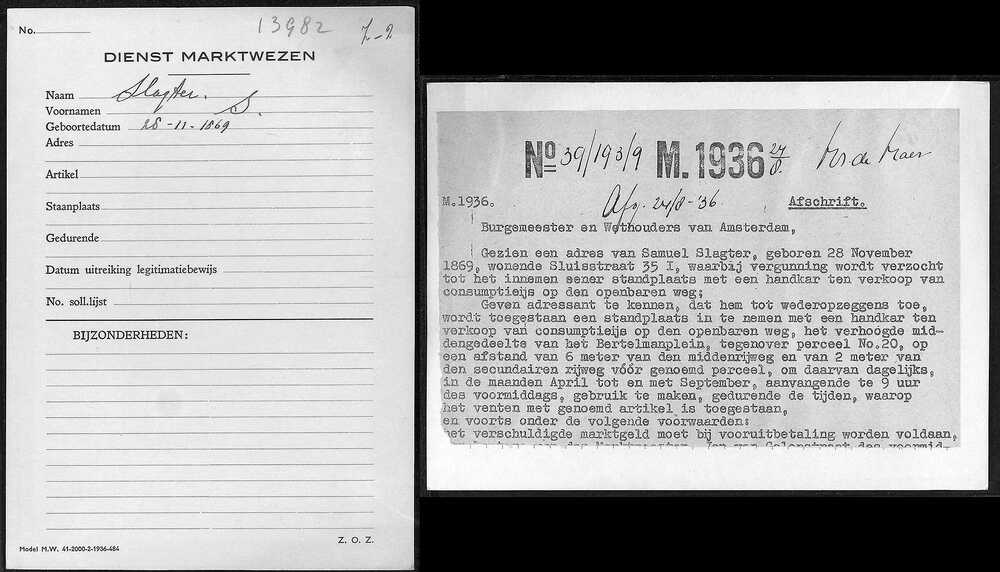 No.
13982
Z-2
DIENST MARKTWEZEN
Naam Slagter.
Voornamen S.
Geboortedatum 28-11-1869
Adres
Artikel
Staanplaats
Gedurende
Datum uitreiking legitimatiebewijs
No. soll.lijst
BIJZONDERHEDEN:
Z. O. Z.
Model M.W. 41-2000-2-1936-484
No 39/193/9 M. 1936 24/8.
M.1936. Afg. 24/8-'36 Afschrift.
Burgemeester en Wethouders van Amsterdam,
Gezien een adres van Samuel Slagter, geboren 28 November
1869, wonende Sluisstraat 35 I, waarbij vergunning wordt verzocht
tot het innemen eener standplaats met een handkar ten verkoop van
consumptieijs op den openbaren weg;
Geven adressant te kennen, dat hem tot wederopzeggens toe,
wordt toegestaan een standplaats in te nemen met een handkar ten
verkoop van consumptieijs op den openbaren weg, het verhoogde mid-
dengedeelte van het Bertelmanplein, tegenover perceel No.20, op
een afstand van 6 meter van den middenrijweg en van 2 meter van
den secundairen rijweg vóór genoemd perceel, om daarvan dagelijks,
in de maanden April tot en met September, aanvangende te 9 uur
des voormiddags, gebruik te maken, gedurende de tijden, waarop
het venten met genoemd artikel is toegestaan,
en voorts onder de volgende voorwaarden:
het verschuldigde marktgeld moet bij vooruitbetaling worden voldaan,